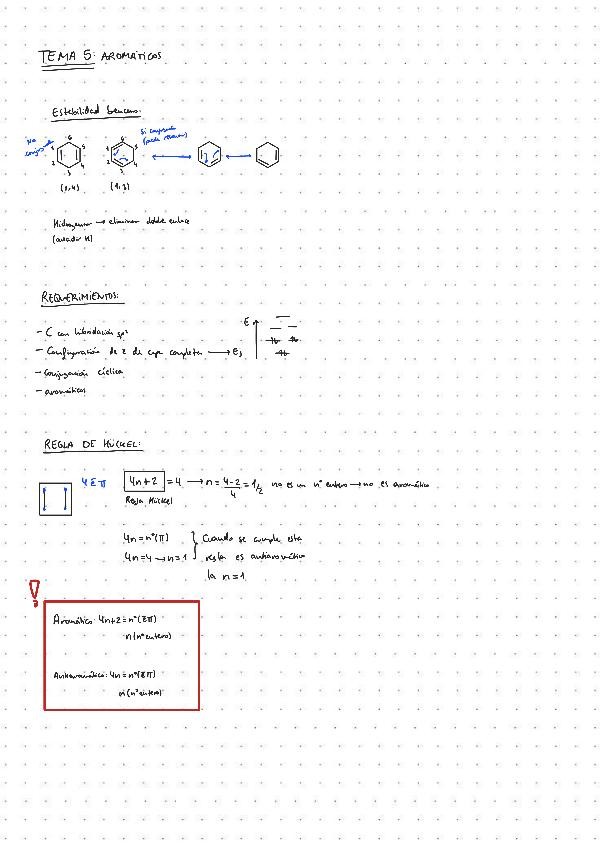 TEMA 5: AROMÁTICOS
Estabilidad benceno:
No conjug
Si conjugado
6
1 5
2 4
3
6
1 5
2 4
3
(1,4) (1,3)
Hidrogenar → eliminar doble enlace
(añadir H)
REQUERIMIENTOS:
- C con hibridación sp²
- Configuración de e de capa completa → Ej
E
- Conjugación cíclica
- aromáticos
REGLA DE HÜCKEL:
4 e π
4n+2 = 4 → n = 4-2/4 = 1/2 no es un nº entero → no es aromático
Regla Hückel
4n = nº(π)
4n = 4 → n = 1
Cuando se cumple esta
regla es antiaromático
la n = 1
!
Aromático: 4n+2 = nº(eπ)
n (nº entero)
Antiaromático: 4n = nº(eπ)
n (nº entero)